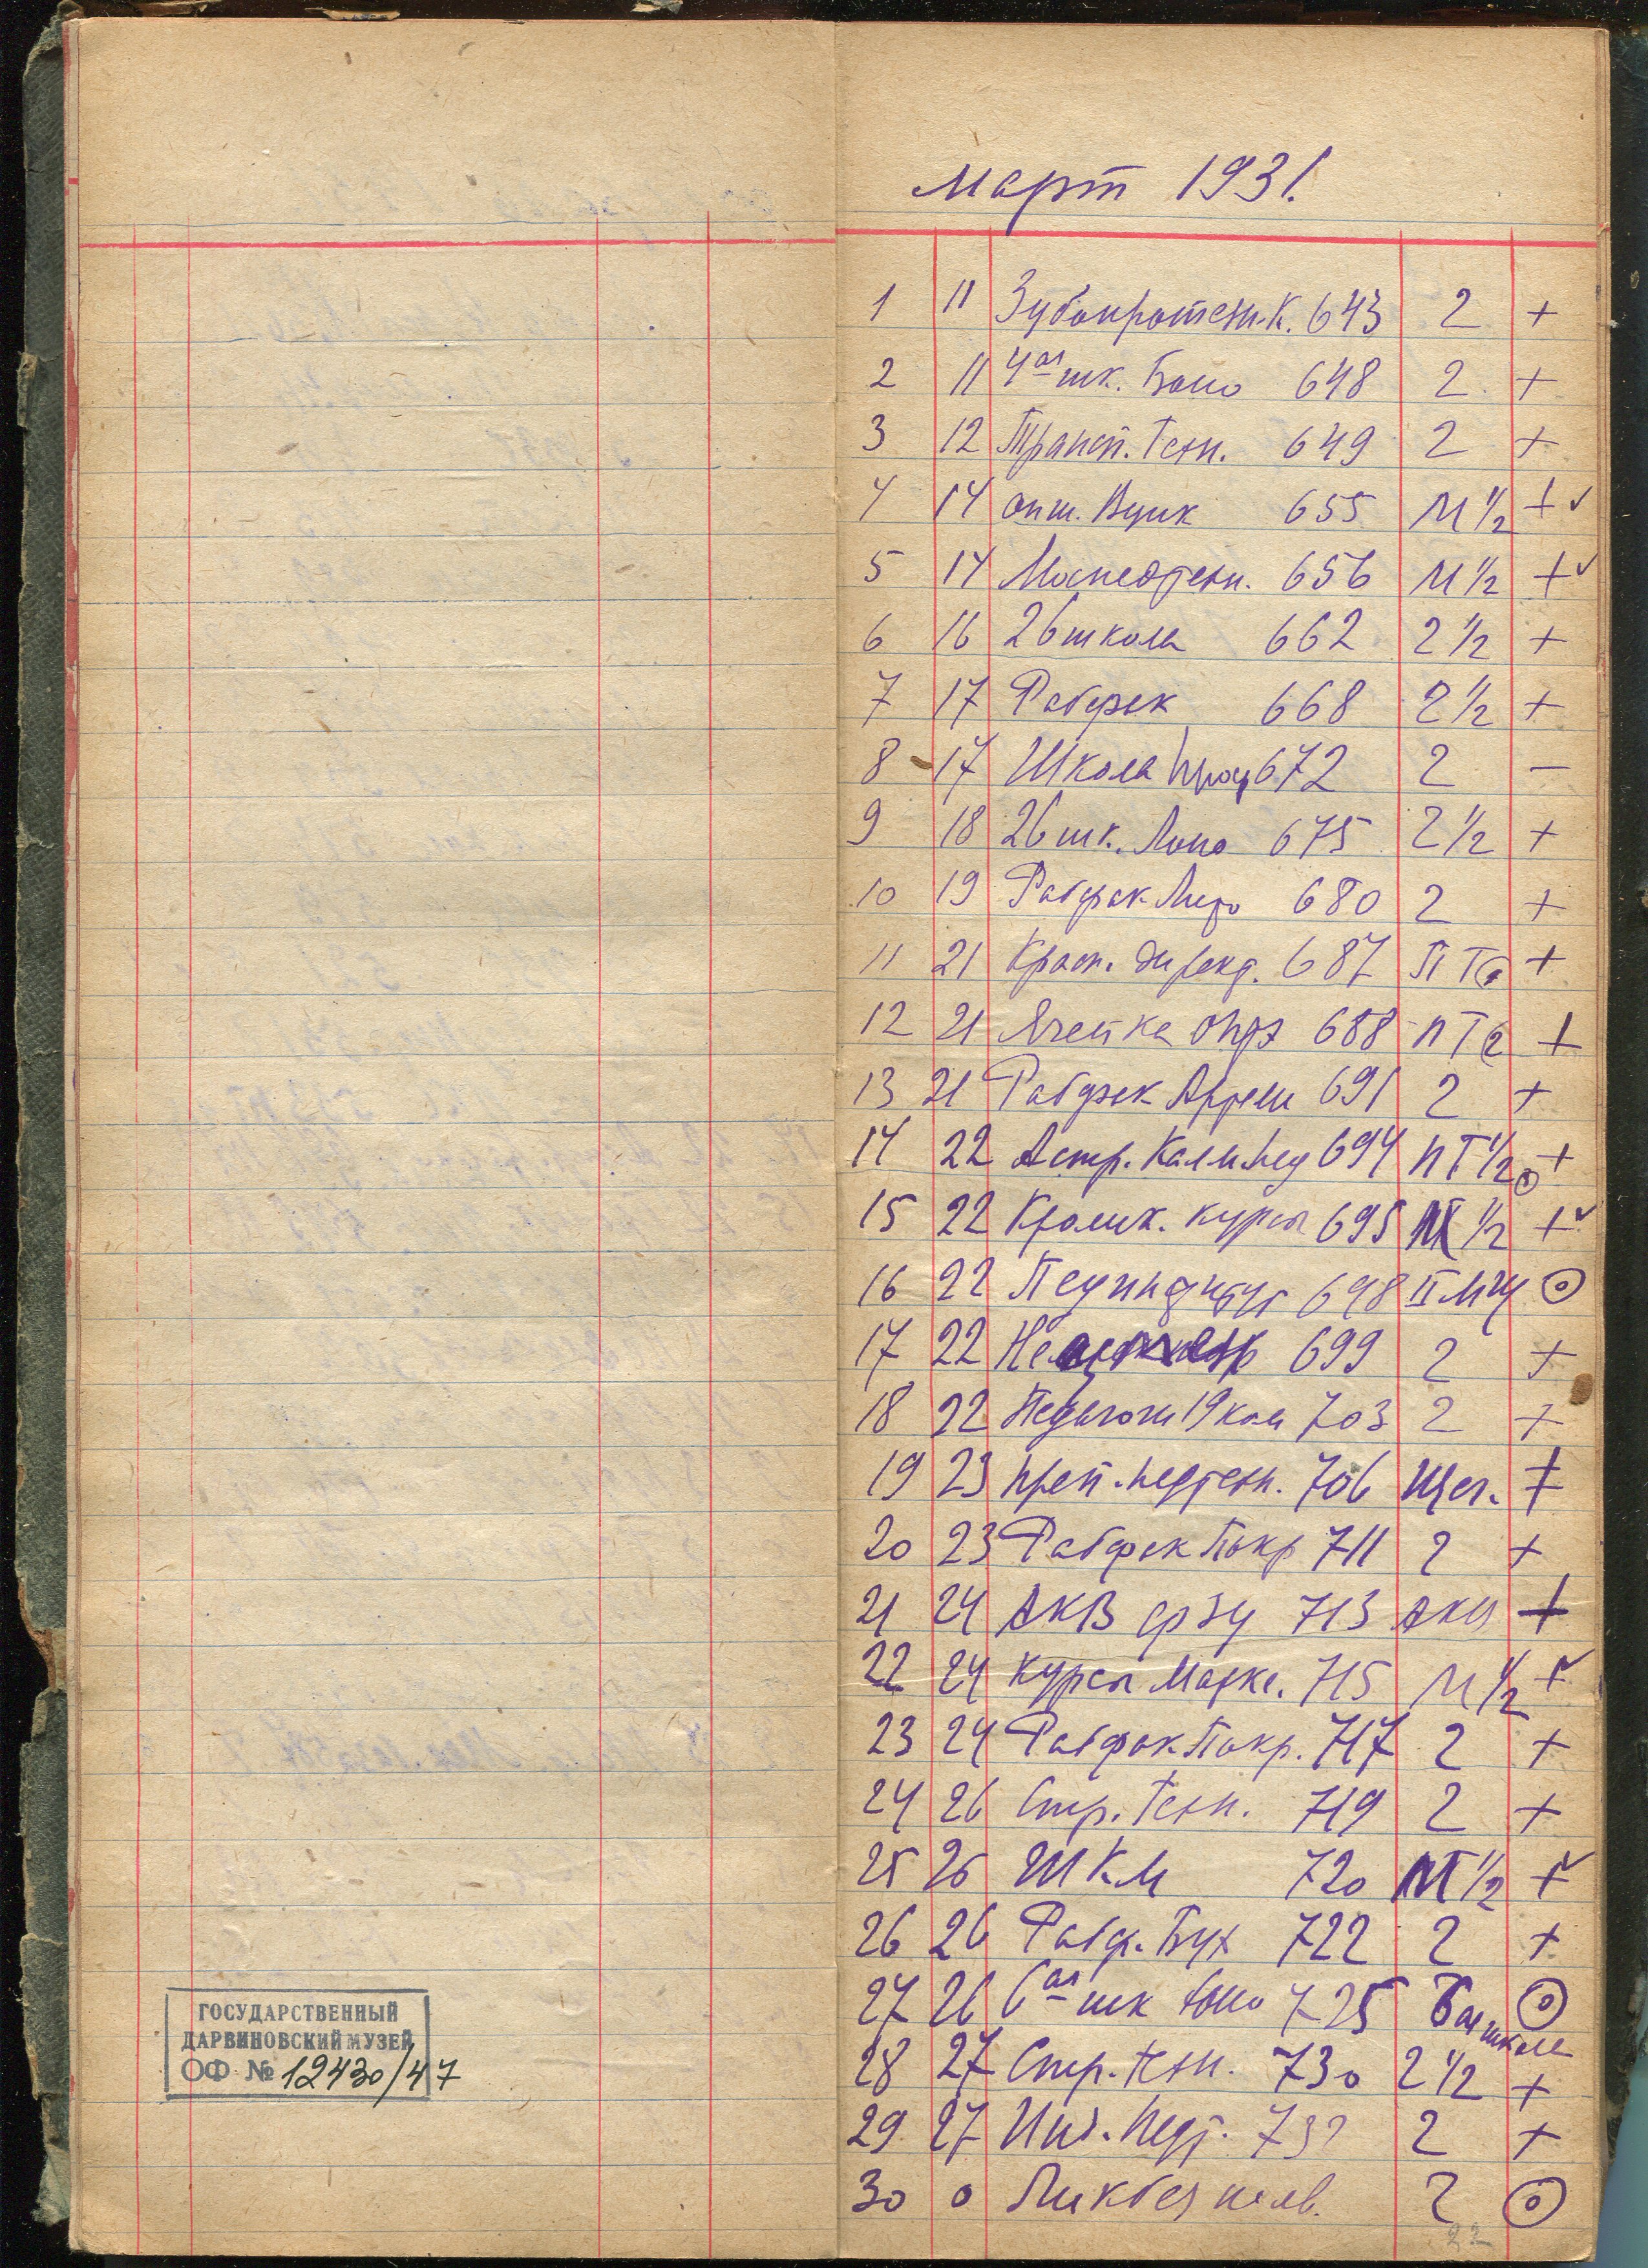 Март 1931.
1 11 Зубопротезн.К. 643 2 +
2 11 4ая шк. Боно 648 2 +
3 12 Трансп. Техн. 649 2 +
4 14 опш. Вцик 655 М 1/2 + ✓
5 14 Моспедтехн. 656 М 1/2 + ✓
6 16 26 школа 662 2 1/2 +
7 17 Рабфак 668 2 1/2 +
8 17 Школа 672 2 —
9 18 26 шк. Лоно 675 2 1/2 +
10 19 Рабфак 680 2 +
11 21 Красн. директ. 687 П Т +
12 21 Ячейка 688 ПТ 2 +
13 21 Рабфак Артем 691 2 +
14 22 Астр. Калм. пед 694 ПТ 1/2 +
15 22 Кролик. курсы 695 М 1/2 + ✓
16 22 Пединститут 698 II МГУ ⊙
17 22 699 2 +
18 22 Педагоги 19 кол 703 2 +
19 23 преп. педтехн. 706 Щег. +
20 23 Рабфак Покр 711 2 +
21 24 АКВ фзу 713 АКВ +
22 24 Курсы 715 М 1/2 + ✓
23 24 Рабфак Покр. 717 2 +
24 26 Стр. Техн. 719 2 +
25 26 ШКМ 720 М 1/2 + ✓
26 26 Рабф. Бух 722 2 +
27 26 6ая шк 725 ⊙
28 27 Стр. техн. 730 2 1/2 +
29 27 Инд. педт. 2 +
30 0 Ликбез 2 ⊙
22
ГОСУДАРСТВЕННЫЙ
ДАРВИНОВСКИЙ МУЗЕЙ
ОФ № 12430/47